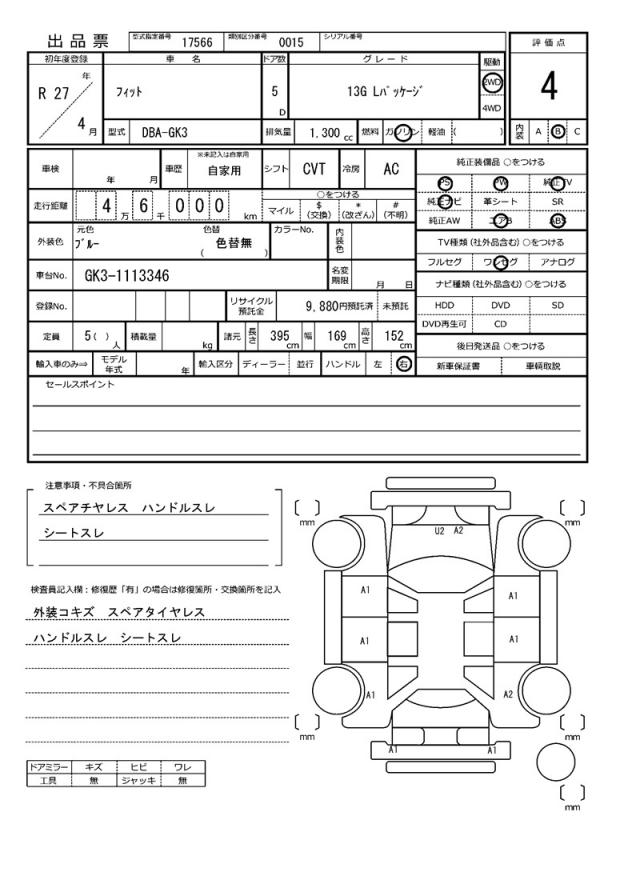 出品票
型式指定番号 17566 類別区分番号 0015 シリアル番号
評価点
4
内装 A B C
初年度登録 車名 ドア数 グレード 駆動
R 27 年 4 月
フィット 5 D 13G Lパッケージ 2WD 4WD
型式 DBA-GK3 排気量 1.300 cc 燃料 ガソリン 軽油 ( )
車検 年 月 車歴 ※未記入は自家用 自家用 シフト CVT 冷房 AC
走行距離 4 万 6 千 0 0 0 km ○をつける
マイル $ (交換) * (改ざん) # (不明)
外装色 元色 ブルー 色替 ( 色替無 ) カラーNo. 内装色
車台No. GK3-1113346 名変期限 月 日
登録No. リサイクル預託金 9,880円預託済 未預託
定員 5( ) 人 積載量 kg 諸元 長さ 395 cm 幅 169 cm 高さ 152 cm
輸入車のみ⇒ モデル年式 年 輸入区分 ディーラー 並行 ハンドル 左 右
純正装備品 ○をつける
PS PW 純正TV
純正ナビ 革シート SR
純正AW エアB ABS
TV種類(社外品含む) ○をつける
フルセグ ワンセグ アナログ
ナビ種類(社外品含む) ○をつける
HDD DVD SD
DVD再生可 CD
後日発送品 ○をつける
新車保証書 車輌取説
セールスポイント
注意事項・不具合箇所
スペアチヤレス ハンドルスレ
シートスレ
検査員記入欄：修復歴「有」の場合は修復箇所・交換箇所を記入
外装コキズ スペアタイヤレス
ハンドルスレ シートスレ
ドアミラー キズ ヒビ ワレ
工具 無 ジャッキ 無
mm mm
U2 A2
A1 A1
A1 A1
A1 A2
mm mm
A1 A1
mm